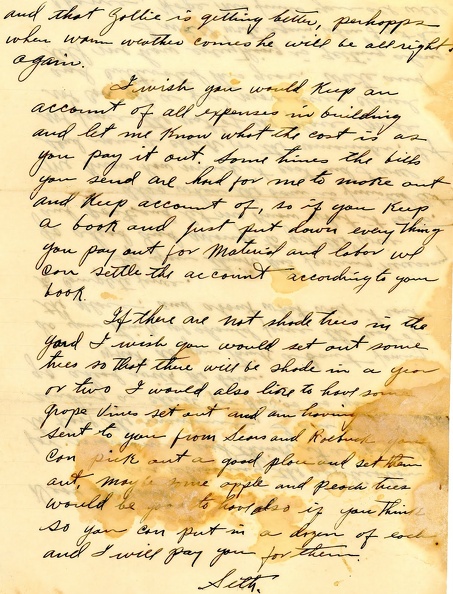 and that Gollie is getting better, perhapps
when warm weather comes he will be all right
again.
I wish you would Keep an
account of all expenses in building
and let me Know what the cost is as
you pay it out. Some times the bills
you send are hard for me to make out
and Keep account of, so if you Keep
a book and just put down everything
you pay out for Material and labor we
can settle the account according to your
book.
If there are not shade trees in the
yard I wish you would set out some
trees so that there will be shade in a year
or two I would also like to have some
grape vines set out and am having
sent to you from Sears and Roebuck you
can pick out a good place and set them
out, maybe some apple and peach trees
would be to have also if you think
so you can put in a dozen of each
and I will pay you for them.
Seth.